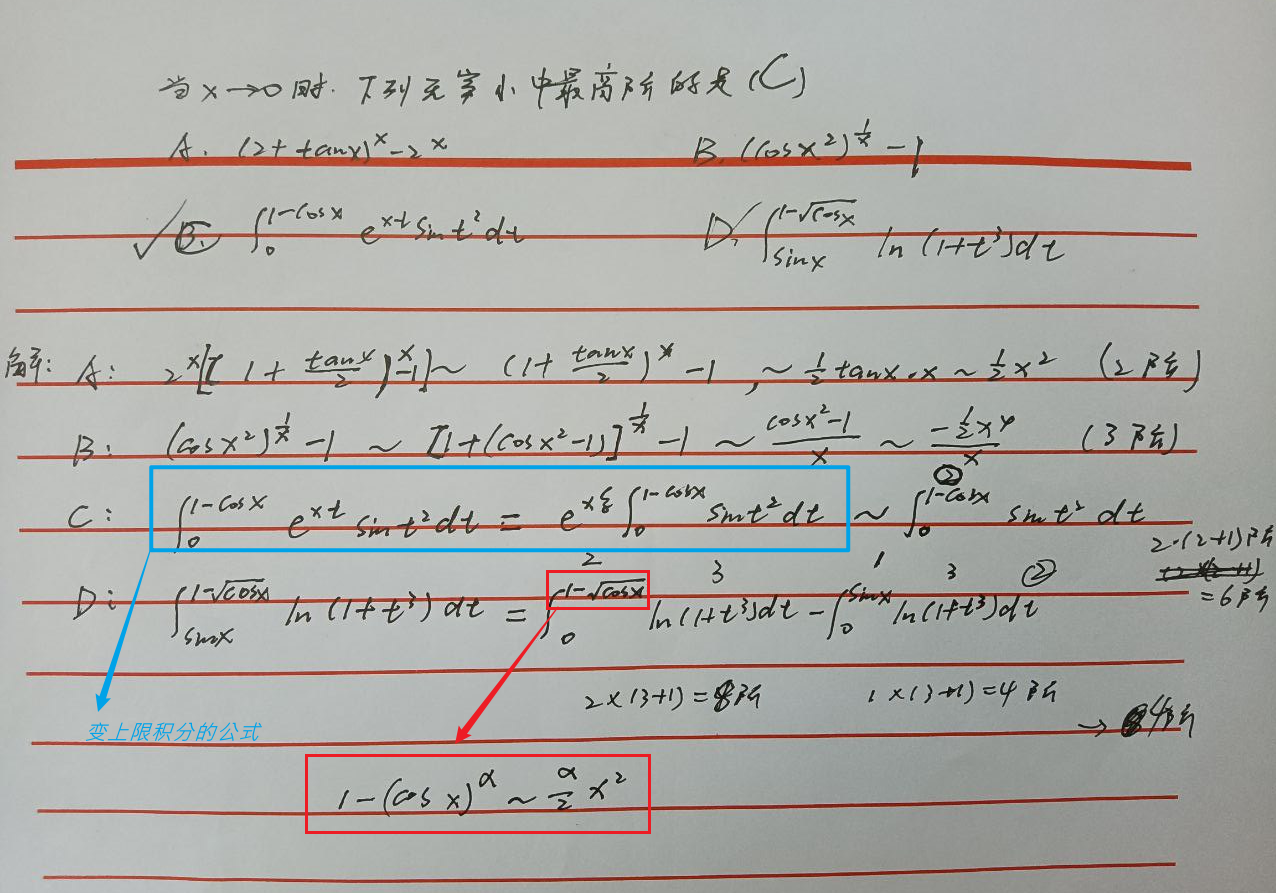 当x→0时.下列无穷小中最高阶的是(C)
A. (2+tanx)^x-2^x B. (cosx²)^{1/x}-1
✓ B. ∫_0^{1-cosx} e^{xt}sint²dt D. ✓ ∫_{sinx}^{1-√cosx} ln(1+t³)dt
解: A: 2^x[(1+tanx/2)^x-1]~(1+tanx/2)^x-1,~1/2tanx·x~1/2x² (2阶)
B: (cosx²)^{1/x}-1~[1+(cosx²-1)]^{1/x}-1~(cosx²-1)/x~(-1/2x⁴)/x (3阶)
C: ∫_0^{1-cosx} e^{xt}sint²dt=e^{xξ}∫_0^{1-cosx}sint²dt~∫_0^{1-cosx}sint²dt ②
2·(2+1)阶
=6阶
2 3 1 3 ②
D: ∫_{sinx}^{1-√cosx} ln(1+t³)dt=∫_0^{1-√cosx} ln(1+t³)dt-∫_0^{sinx}ln(1+t³)dt
2×(3+1)=8阶 1×(3+1)=4阶
→4阶
变上限积分的公式
1-(cosx)^α~α/2 x²